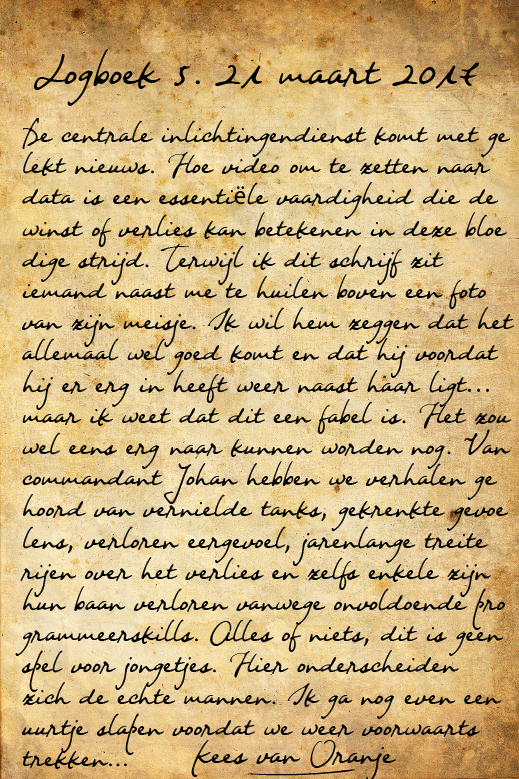 Logboek 5. 21 maart 2017
De centrale inlichtingendienst komt met ge
lekt nieuws. Hoe video om te zetten naar
data is een essentiële vaardigheid die de
winst of verlies kan betekenen in deze bloe
dige strijd. Terwijl ik dit schrijf zit
iemand naast me te huilen boven een foto
van zijn meisje. Ik wil hem zeggen dat het
allemaal wel goed komt en dat hij voordat
hij er erg in heeft weer naast haar ligt...
maar ik weet dat dit een fabel is. Het zou
wel eens erg naar kunnen worden nog. Van
commandant Johan hebben we verhalen ge
hoord van vernielde tanks, gekrenkte gevoe
lens, verloren eergevoel, jarenlange treite
rijen over het verlies en zelfs enkele zijn
hun baan verloren vanwege onvoldoende pro
grammeerskills. Alles of niets, dit is geen
spel voor jongetjes. Hier onderscheiden
zich de echte mannen. Ik ga nog even een
uurtje slapen voordat we weer voorwaarts
trekken... Kees van Oranje